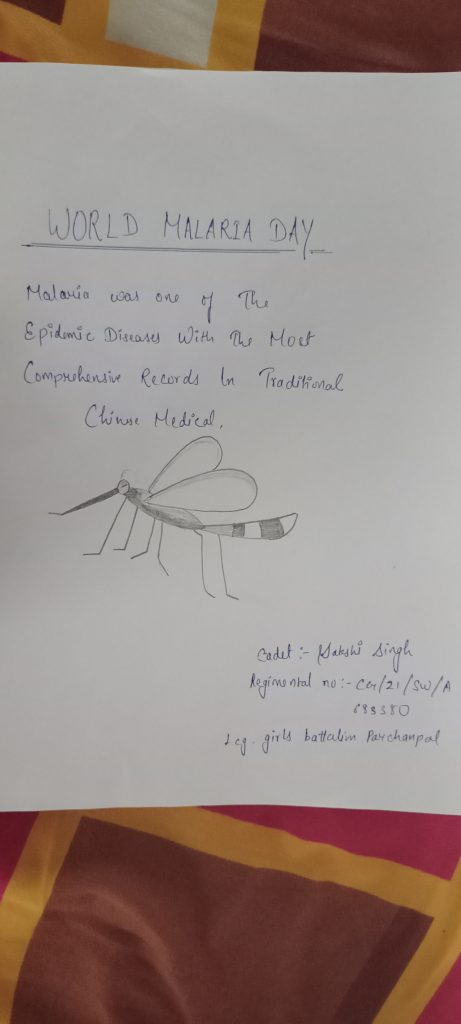 WORLD MALARIA DAY
Malaria was one of The
Epidemic Diseases With The Most
Comprehensive Records In Traditional
Chinese Medical.
Cadet :- Sakshi Singh
Regimental no :- CG/21/SW/A
683380
1 cg. girls battalion Parchanpal